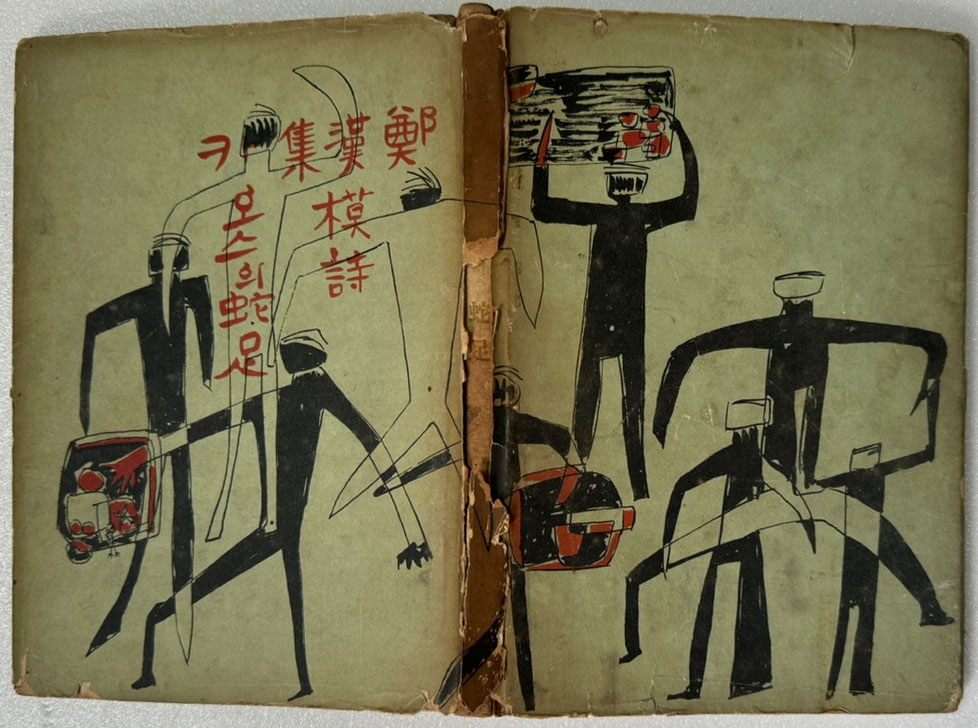 鄭漢模詩集
카오스의 蛇足
蛇足